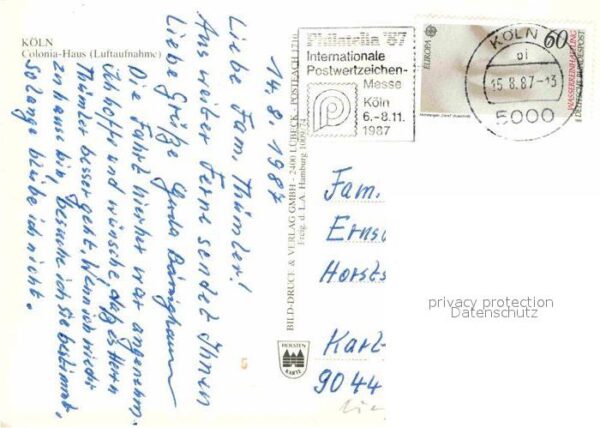 KÖLN
Colonia-Haus (Luftaufnahme)
14.8.1987
Liebe Fam. Thümler!
Aus weiter Ferne sendet Ihnen
liebe Grüße Gerda
Die Fahrt hierher war angenehm.
Ich hoffe und wünsche, daß es Herrn
Thümler besser geht. Wenn ich wieder
zu Hause bin, besuche ich Sie bestimmt,
solang bleibe ich nicht.
BILD-DRUCK & VERLAG GMBH - 2400 LÜBECK - POSTFACH 1710
Freig. d. L.A. Hamburg 1009/74
HOLSTEN
KARTE
Philatelia '87
Internationale
Postwertzeichen-
Messe
Köln
6.-8.11.
1987
EUROPA
60
DEUTSCHE BUNDESPOST
KÖLN
15.8.87-13
5000
Fam.
Karl-
9044
privacy protection
Datenschutz